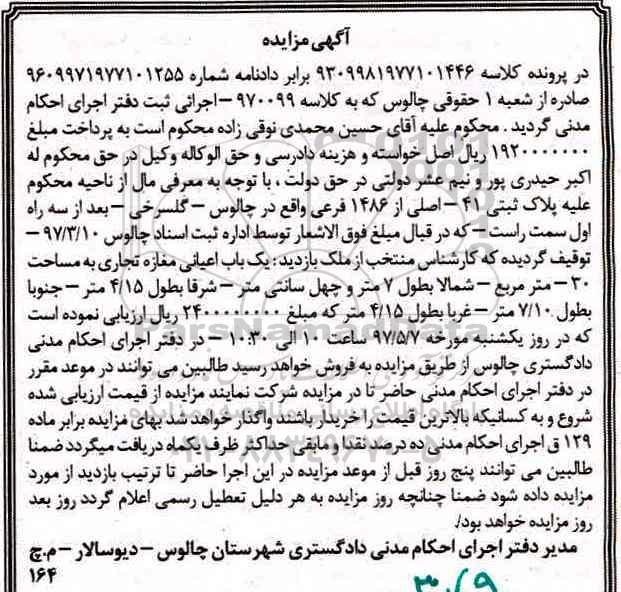 آگهی مزایده
در پرونده کلاسه ۹۳۰۹۹۸۱۹۷۷۱۰۱۴۴۶ برابر دادنامه شماره ۹۶۰۹۹۷۱۹۷۷۱۰۱۲۵۵
صادره از شعبه ۱ حقوقی چالوس که به کلاسه ۹۷۰۰۹۹ – اجرائی ثبت دفتر اجرای احکام
مدنی گردید . محکوم علیه آقای حسین محمدی نوقی زاده محکوم است به پرداخت مبلغ
۱۹۲۰۰۰۰۰۰۰ ریال اصل خواسته و هزینه دادرسی و حق الوکاله وکیل در حق محکوم له
اکبر حیدری پور و نیم عشر دولتی در حق دولت ، با توجه به معرفی مال از ناحیه محکوم
علیه پلاک ثبتی ۴۱ – اصلی از ۱۴۸۶ فرعی واقع در چالوس – گلسرخی – بعد از سه راه
اول سمت راست – که در قبال مبلغ فوق الاشعار توسط اداره ثبت اسناد چالوس ۹۷/۳/۱۰ –
توقیف گردیده که کارشناس منتخب از ملک بازدید : یک باب اعیانی مغازه تجاری به مساحت
۳۰ – متر مربع – شمالا بطول ۷ متر و چهل سانتی متر – شرقا بطول ۴/۱۵ متر – جنوبا
بطول ۷/۱۰ متر – غربا بطول ۴/۱۵ متر که مبلغ ۲۴۰۰۰۰۰۰۰۰ ریال ارزیابی نموده است
که در روز یکشنبه مورخه ۹۷/۵/۷ ساعت ۱۰ الی ۱۰:۳۰ – در دفتر اجرای احکام مدنی
دادگستری چالوس از طریق مزایده به فروش خواهد رسید طالبین می توانند در موعد مقرر
در دفتر اجرای احکام مدنی حاضر تا در مزایده شرکت نمایند مزایده از قیمت ارزیابی شده
شروع و به کسانیکه بالاترین قیمت را خریدار باشند واگذار خواهد شد بهای مزایده برابر ماده
۱۲۹ ق اجرای احکام مدنی ده درصد نقدا و مابقی حداکثر ظرف یکماه دریافت میگردد ضمنا
طالبین می توانند پنج روز قبل از موعد مزایده در این اجرا حاضر تا ترتیب بازدید از مورد
مزایده داده شود ضمنا چنانچه روز مزایده به هر دلیل تعطیل رسمی اعلام گردد روز بعد
روز مزایده خواهد بود/.
مدیر دفتر اجرای احکام مدنی دادگستری شهرستان چالوس – دیوسالار – م.چ
۱۶۴
ParsNamadData
۰۲۱-۸۸۳۴۹۶۷۰-۵